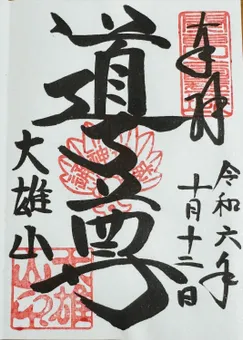 奉拝
令和六年
十月十二日
道了尊
大雄山